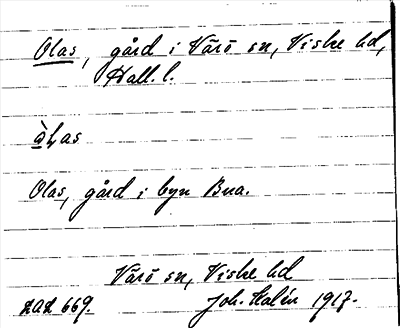 Olas, gård i Värö sn, Viske hd,
Hall. l.
Olas, gård i byn Bua.
Värö sn, Viske hd
669. Joh. Kalén 1917.